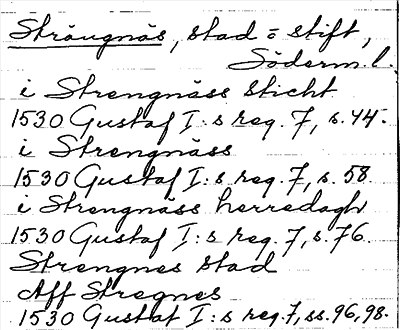 Strängnäs, stad = stift,
Söderm. l.
i Strengnäss sticht
1530 Gustaf I:s reg. 7, s. 44.
i Strengnäss
1530 Gustaf I:s reg. 7, s. 58.
i Strengnäss herredagh
1530 Gustaf I:s reg. 7, s. 76.
Strengnes stad
Aff Stregnes
1530 Gustaf I:s reg. 7, ss. 96, 98.